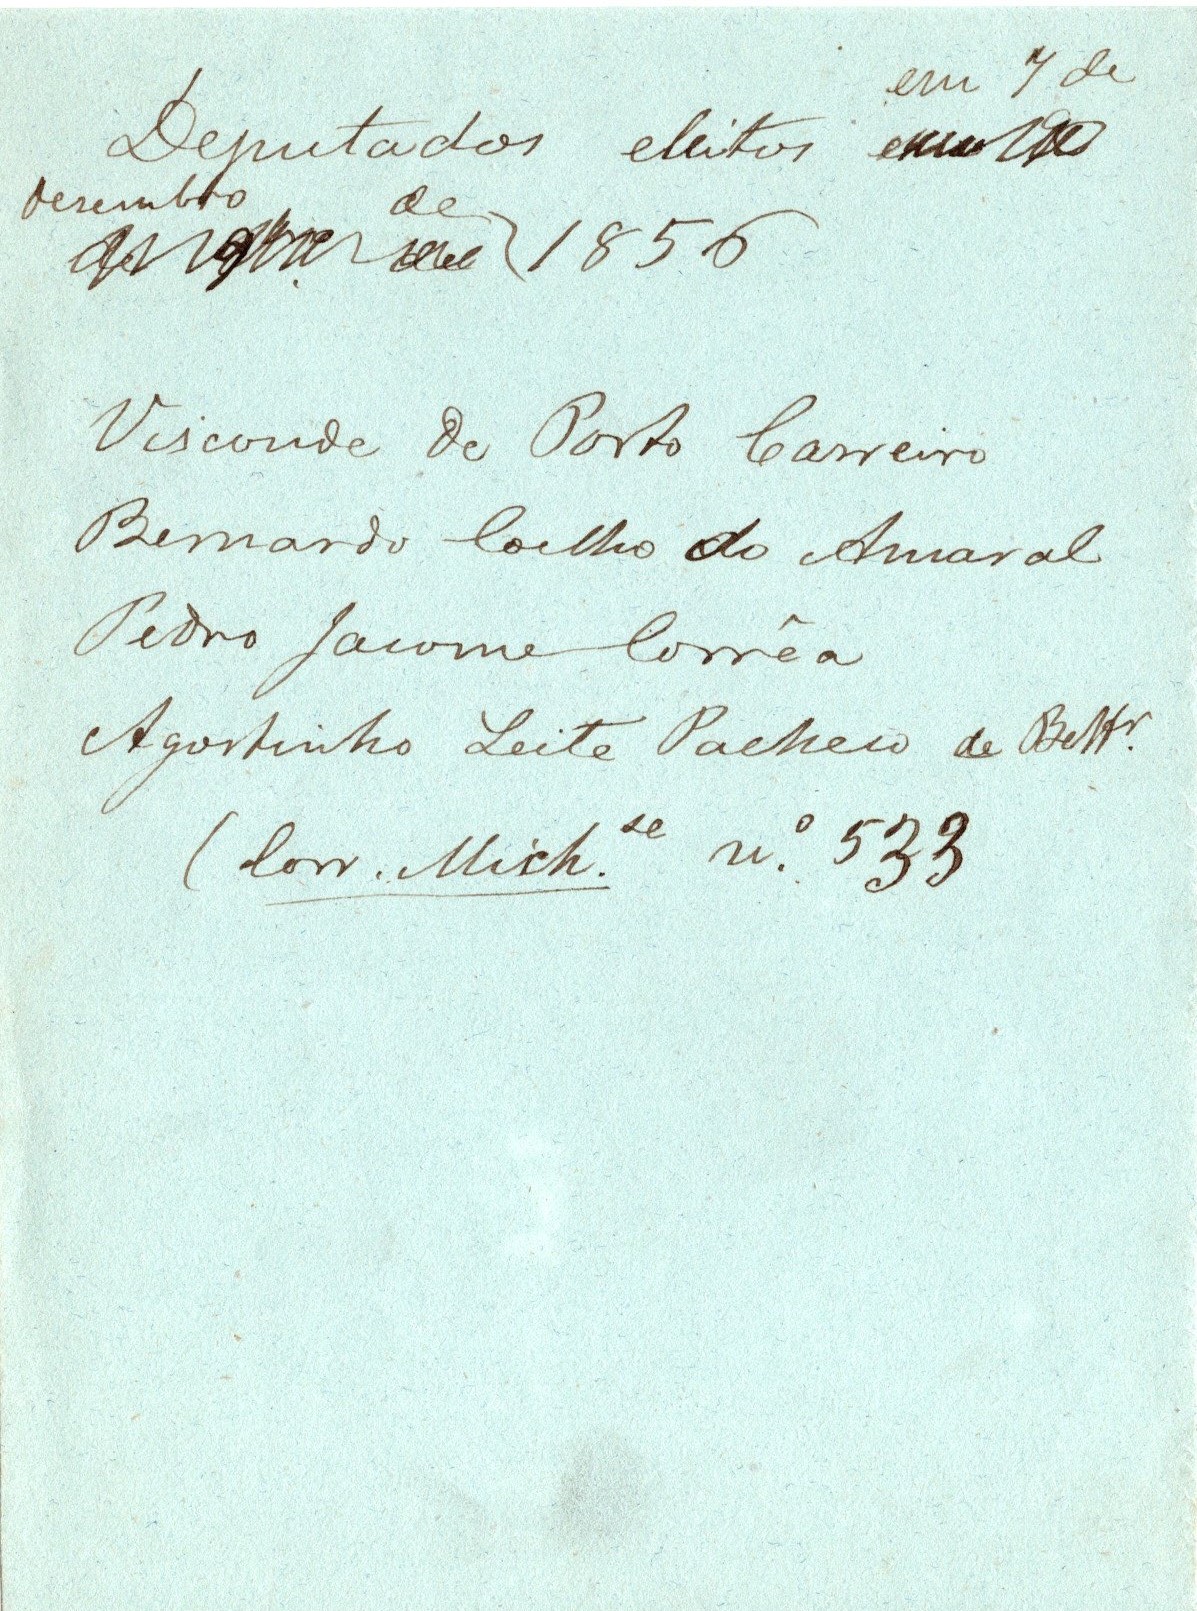 em 7 de
Deputados eleitos
desembro de
1856
Visconde de Porto Carreiro
Bernardo Coelho do Amaral
Pedro Jacome Corrêa
Agostinho Leite Pacheco de Bettr.
(Corr. Mich.se n.º 533